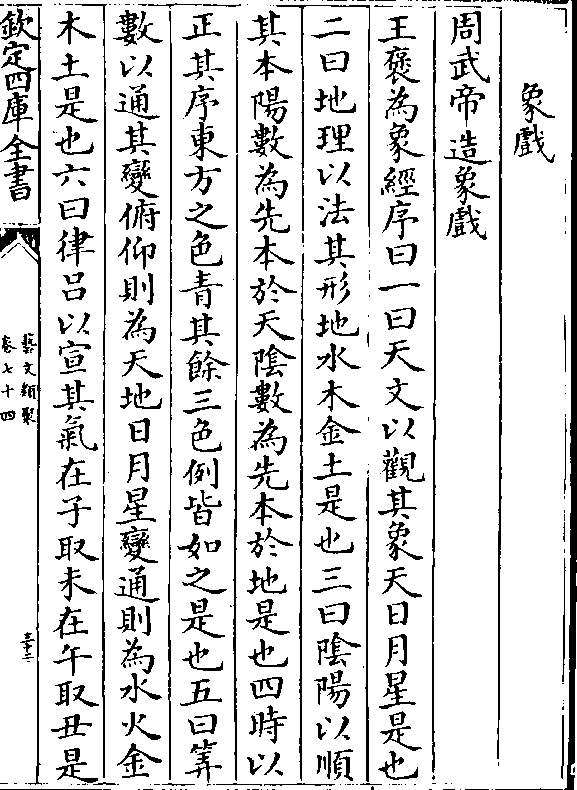 象戲
周武帝造象戲
王褒為象經序曰一曰天文以觀其象天日月星是也
二曰地理以法其形地水木金土是也三曰陰陽以順
其本陽數為先本於天陰數為先本於地是也四時以
正其序東方之色青其餘三色例皆如之是也五曰筭
數以通其變俯仰則為天地日月星變通則為水火金
木土是也六曰律呂以宣其氣在子取未在午取丑是
欽定四庫全書
藝文類聚
卷七十四
三十二